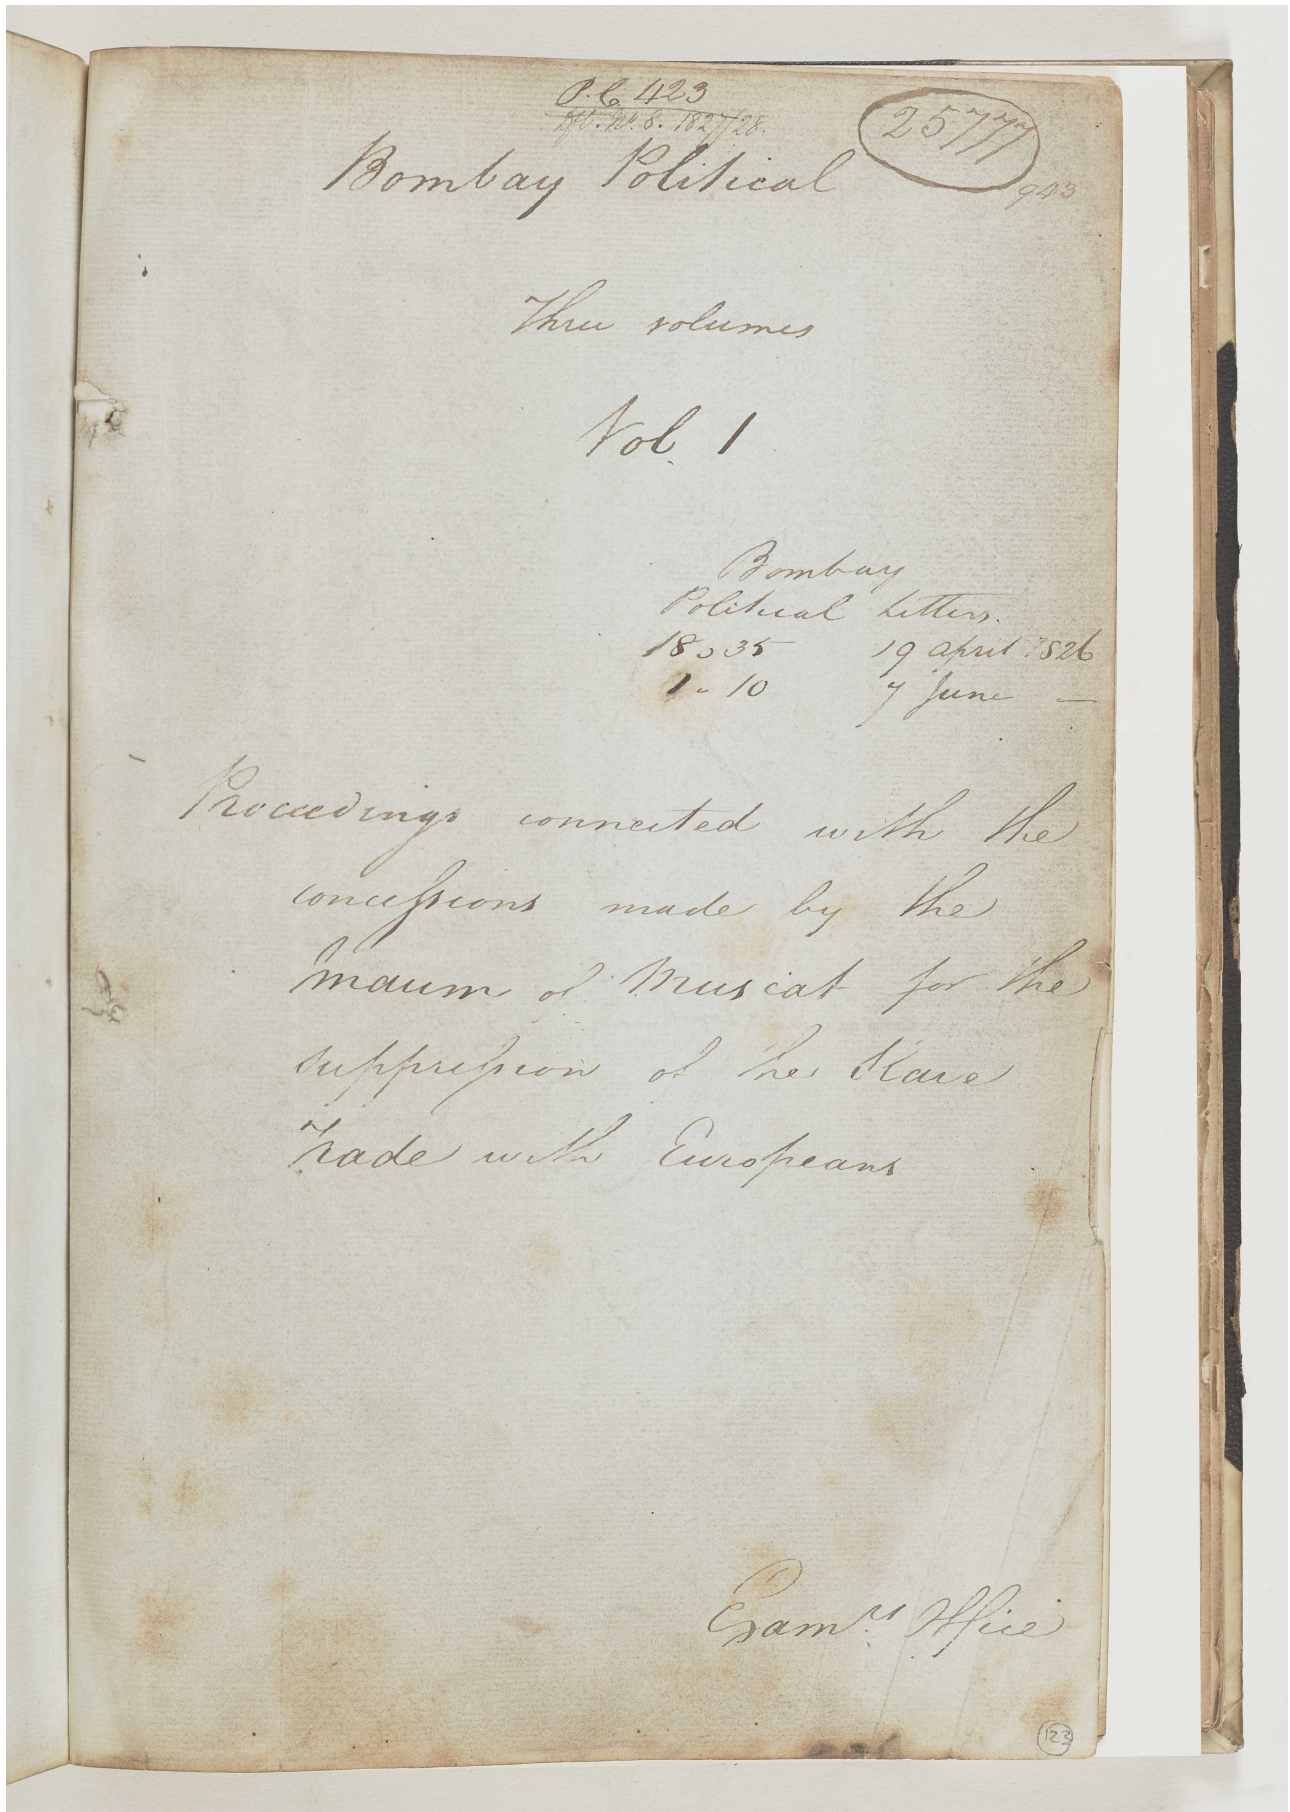 P.C. 423
Dft. No. 8. 1827/28.
25777
943
Bombay Political
Three volumes
Vol. 1
Bombay
Political Letters.
18 to 35 19 April 1826
1 - 10 7 June —
Proceedings connected with the
concessions made by the
Imaum of Muscat for the
suppression of the Slave
Trade with Europeans
Examrs Office
123